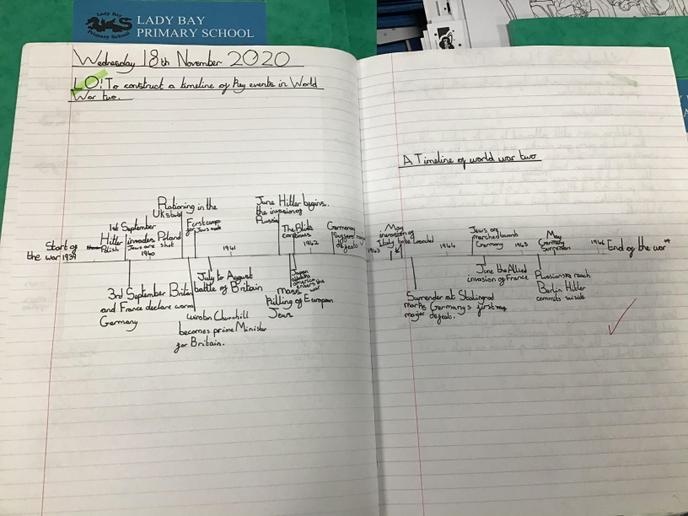 LADY BAY
PRIMARY SCHOOL
Lady Bay
Primary School
Wednesday 18th November 2020
LO: To construct a timeline of key events in World
War two.
A Timeline of world war two
Start of
the war 1939
1st September
Hitler invades Poland
Polish Jews are shot
1940
Rationing in the
UK starts
First camp
for Jews
1941
June Hitler begins
the invasion of
Russia
The Blitz
continues
1942
Germany
suffers
defeats
1943
May
invasion of
Italy
1944
Jews are
marched towards
Germany
1945
May
Germany
surrenders
End of the war
3rd September Britain
and France declare war on
Germany
July to August
battle of Britain
Winston Churchill
becomes prime Minister
for Britain.
Japan
enters the
war
mass
killing of European
Jews
Surrender at Stalingrad
marks Germany's first
major defeats.
June the Allied
invasion of France
Russians reach
Berlin Hitler
commits suicide